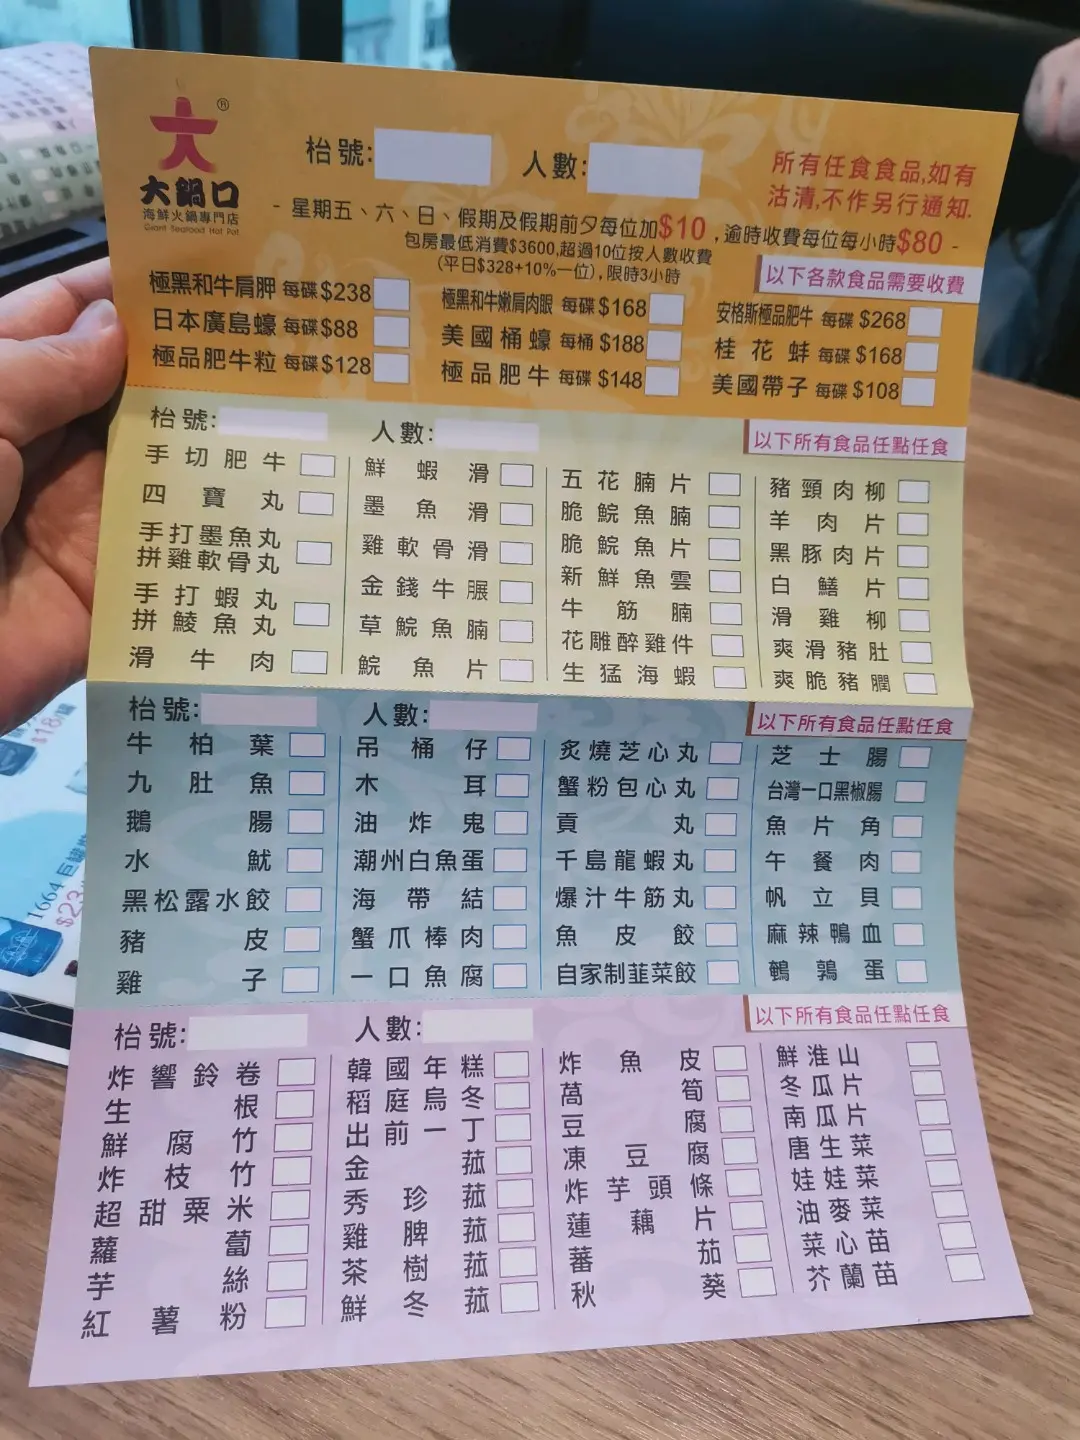 大®
大鍋口
海鮮火鍋專門店
Giant Seafood Hot Pot
枱號:
人數:
所有任食食品,如有
沽清,不作另行通知.
- 星期五、六、日、假期及假期前夕每位加$10,逾時收費每位每小時$80 -
包房最低消費$3600,超過10位按人數收費
(平日$328+10%一位),限時3小時
以下各款食品需要收費
極黑和牛肩胛 每碟$238
極黑和牛嫩肩肉眼 每碟$168
安格斯極品肥牛 每碟$268
日本廣島蠔 每碟$88
美國桶蠔 每桶$188
桂花蚌 每碟$168
極品肥牛粒 每碟$128
極品肥牛 每碟$148
美國帶子 每碟$108
枱號:
人數:
以下所有食品任點任食
手切肥牛
四寶丸
手打墨魚丸
拼雞軟骨丸
手打蝦丸
拼鯪魚丸
滑牛肉
鮮蝦滑
墨魚滑
雞軟骨滑
金錢牛𦟌
草鯇魚腩
鯇魚片
五花腩片
脆鯇魚腩
脆鯇魚片
新鮮魚雲
牛筋腩
花雕醉雞件
生猛海蝦
豬頸肉柳
羊肉片
黑豚肉片
白鱔片
滑雞柳
爽滑豬肚
爽脆豬膶
枱號:
人數:
以下所有食品任點任食
牛柏葉
九肚魚
鵝腸
水魷
黑松露水餃
豬皮
雞子
吊桶仔
木耳
油炸鬼
潮州白魚蛋
海帶結
蟹爪棒肉
一口魚腐
炙燒芝心丸
蟹粉包心丸
貢丸
千島龍蝦丸
爆汁牛筋丸
魚皮餃
自家制韮菜餃
芝士腸
台灣一口黑椒腸
魚片角
午餐肉
帆立貝
麻辣鴨血
鵪鶉蛋
枱號:
人數:
以下所有食品任點任食
炸響鈴卷
生根
鮮腐竹
炸枝竹
超甜粟米
蘿蔔
芋絲
紅薯粉
韓國年糕
稻庭烏冬
出前一丁
金菰
秀珍菰
雞脾菰
茶樹菰
鮮冬菰
炸魚皮
萵筍
豆腐
凍豆腐
炸芋頭條
蓮藕片
蕃茄
秋葵
鮮淮山
冬瓜片
南瓜片
唐生菜
娃娃菜
油麥菜
菜心苗
芥蘭苗
$18/罐
1664
$23